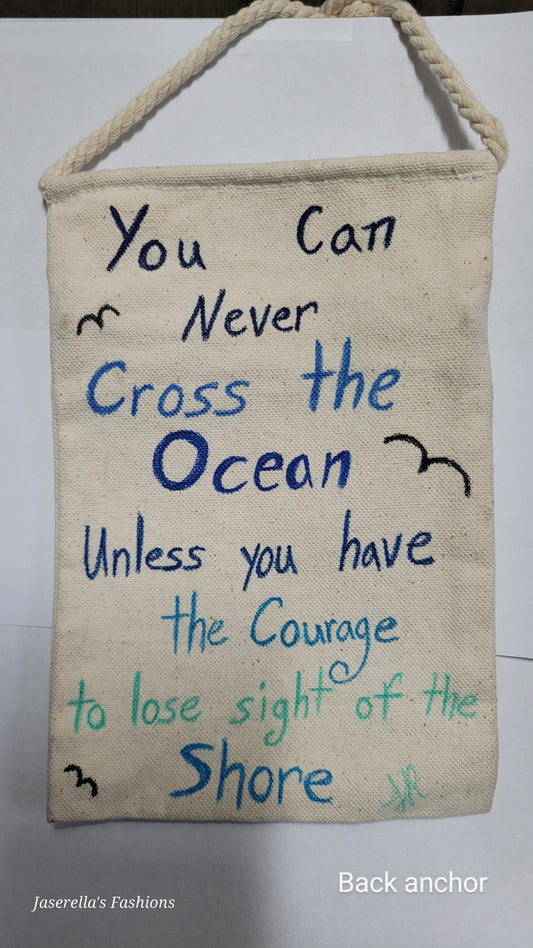 You Can
Never
Cross the
Ocean
Unless you have
the Courage
to lose sight of the
Shore
Back anchor
Jaserella's Fashions